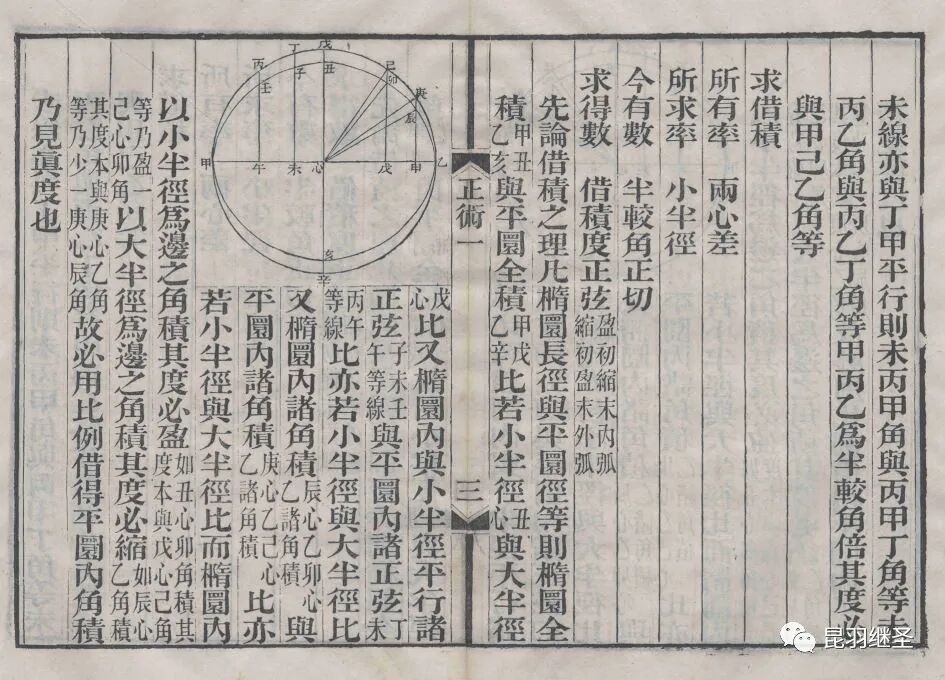 未線亦與丁甲平行則未丙甲角與丙甲丁角等未
丙乙角與丙乙丁角等甲丙乙爲半較角倍其度必
與甲己乙角等
求借積
所有率 兩心差
所求率 小半徑
今有數 半較角正切
求得數 借積度正弦 盈初縮末內弧 縮初盈末外弧
先論借積之理凡橢圜長徑與平圜徑等則橢圜全
積甲丑乙亥與平圜全積甲戊乙辛比若小半徑丑心與大半徑
正術一 三
戊心比又橢圜內與小半徑平行諸
正弦子未壬午等線與平圜內諸正弦丁未
丙午等線比亦若小半徑與大半徑比
又橢圜內諸角積辰心乙卯心乙諸角積與
平圜內諸角積庚心乙己心乙諸角積比亦
若小半徑與大半徑比而橢圜內
戊
丁 丑
子
丙
壬
己
卯
庚
辰
甲 午 未 心 戊 甲 乙
亥
辛
以小半徑爲邊之角積其度必盈如丑心卯角積其度本與戊心己角
等乃盈一己心卯角以大半徑爲邊之角積其度必縮如辰心乙角積
其度本與庚心乙角等乃少一庚心辰角故必用比例借得平圜內角積
乃見眞度也
昆羽继圣